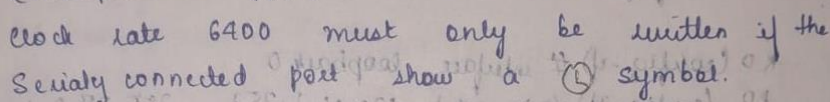 clock rate 6400 must only be written if the
Serialy connected port show a "Ⓛ" symbol.